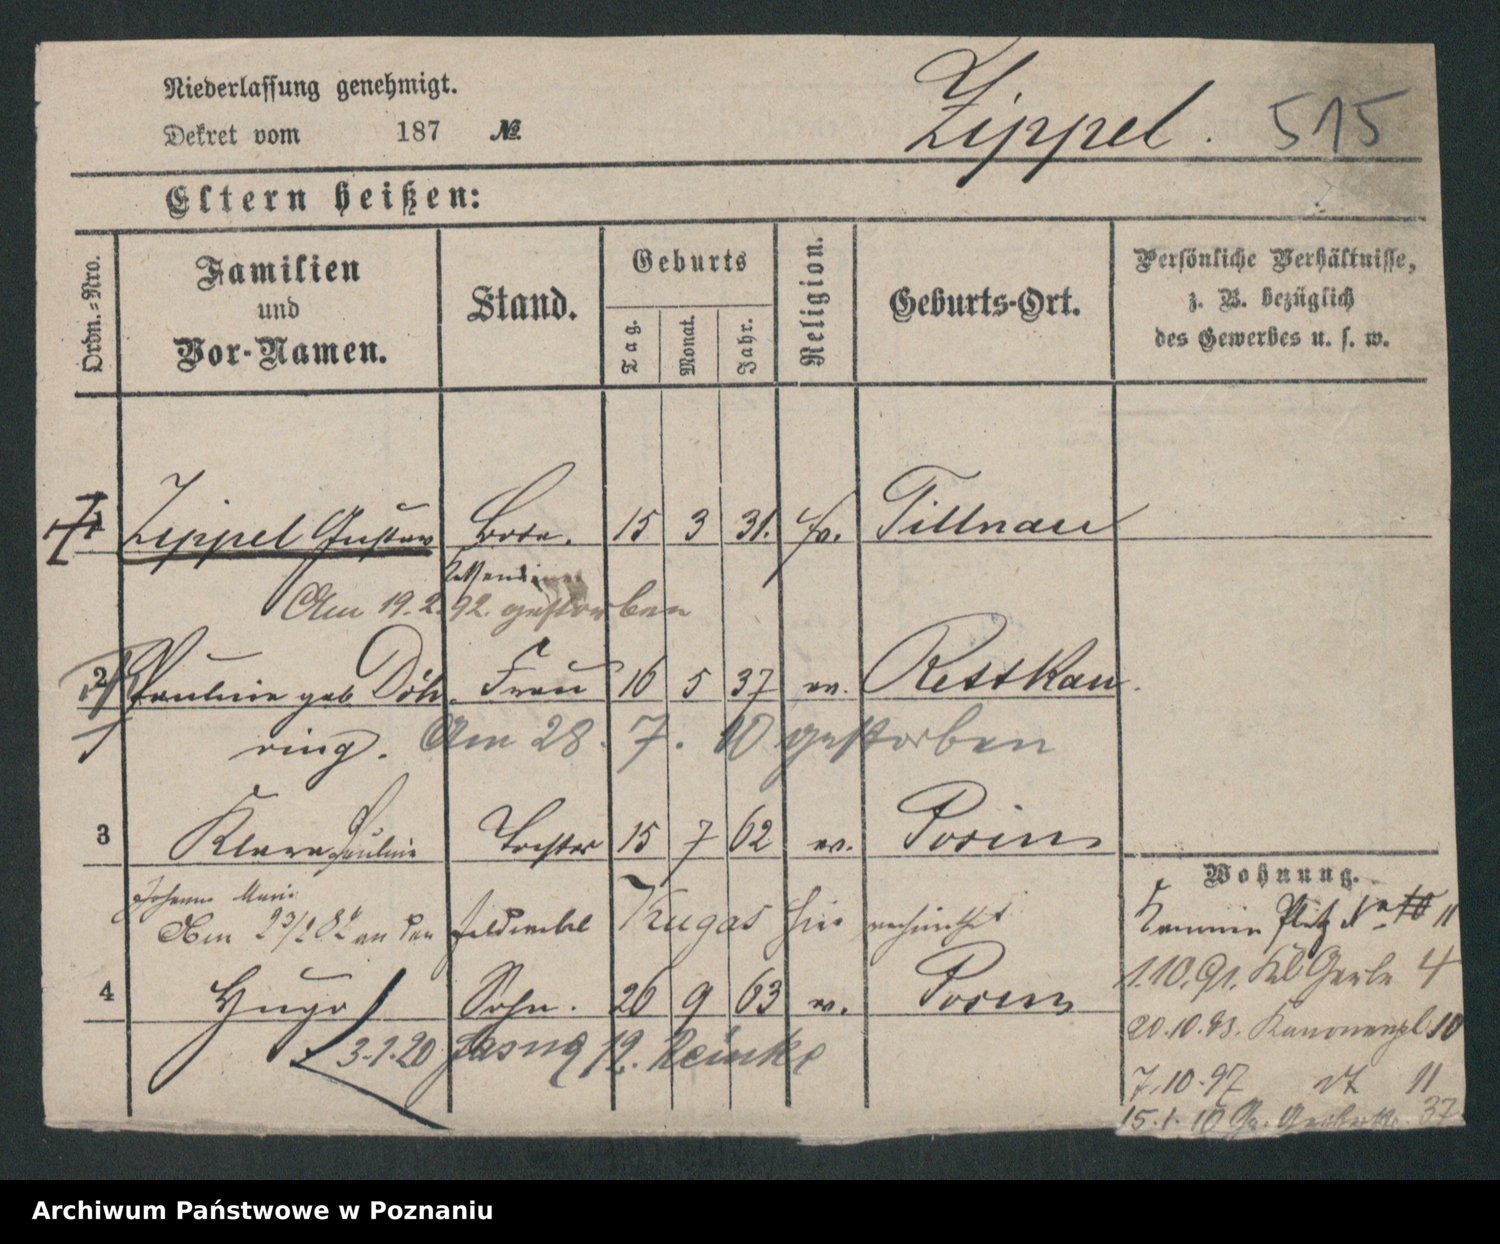 Niederlassung genehmigt.
Dekret vom 187 №
Zippel. 515
Eltern heißen:
Ordn.-Nro.
Familien
und
Vor-Namen.
Stand.
Geburts
Tag.
Monat.
Jahr.
Religion.
Geburts-Ort.
Persönliche Verhältnisse,
z. B. bezüglich
des Gewerbes u. s. w.
Zippel Gustav Bote. 15 3 31. ev. Tillnau
Am 19.2.92. gestorben
2 Pauline geb Döh Frau 16 5 37 ev. Restkau
ring. Am 28. 7. 10 gestorben
3 Klara Pauline Tochter 15 7 62 ev. Posen
Johanna Marie
Am 23/2 82 an den Feldwebel Kugas hier verheirathet
4 Hugo Sohn. 26 9 63 ev. Posen
3.1.20 Jasna 12. Reinke
Wohnung.
Platz No 10 11
1.10.91. Kl Gerbr 4
20.10.93. Kanonenpl 10
7.10.97 dt 11
15.1.10 37